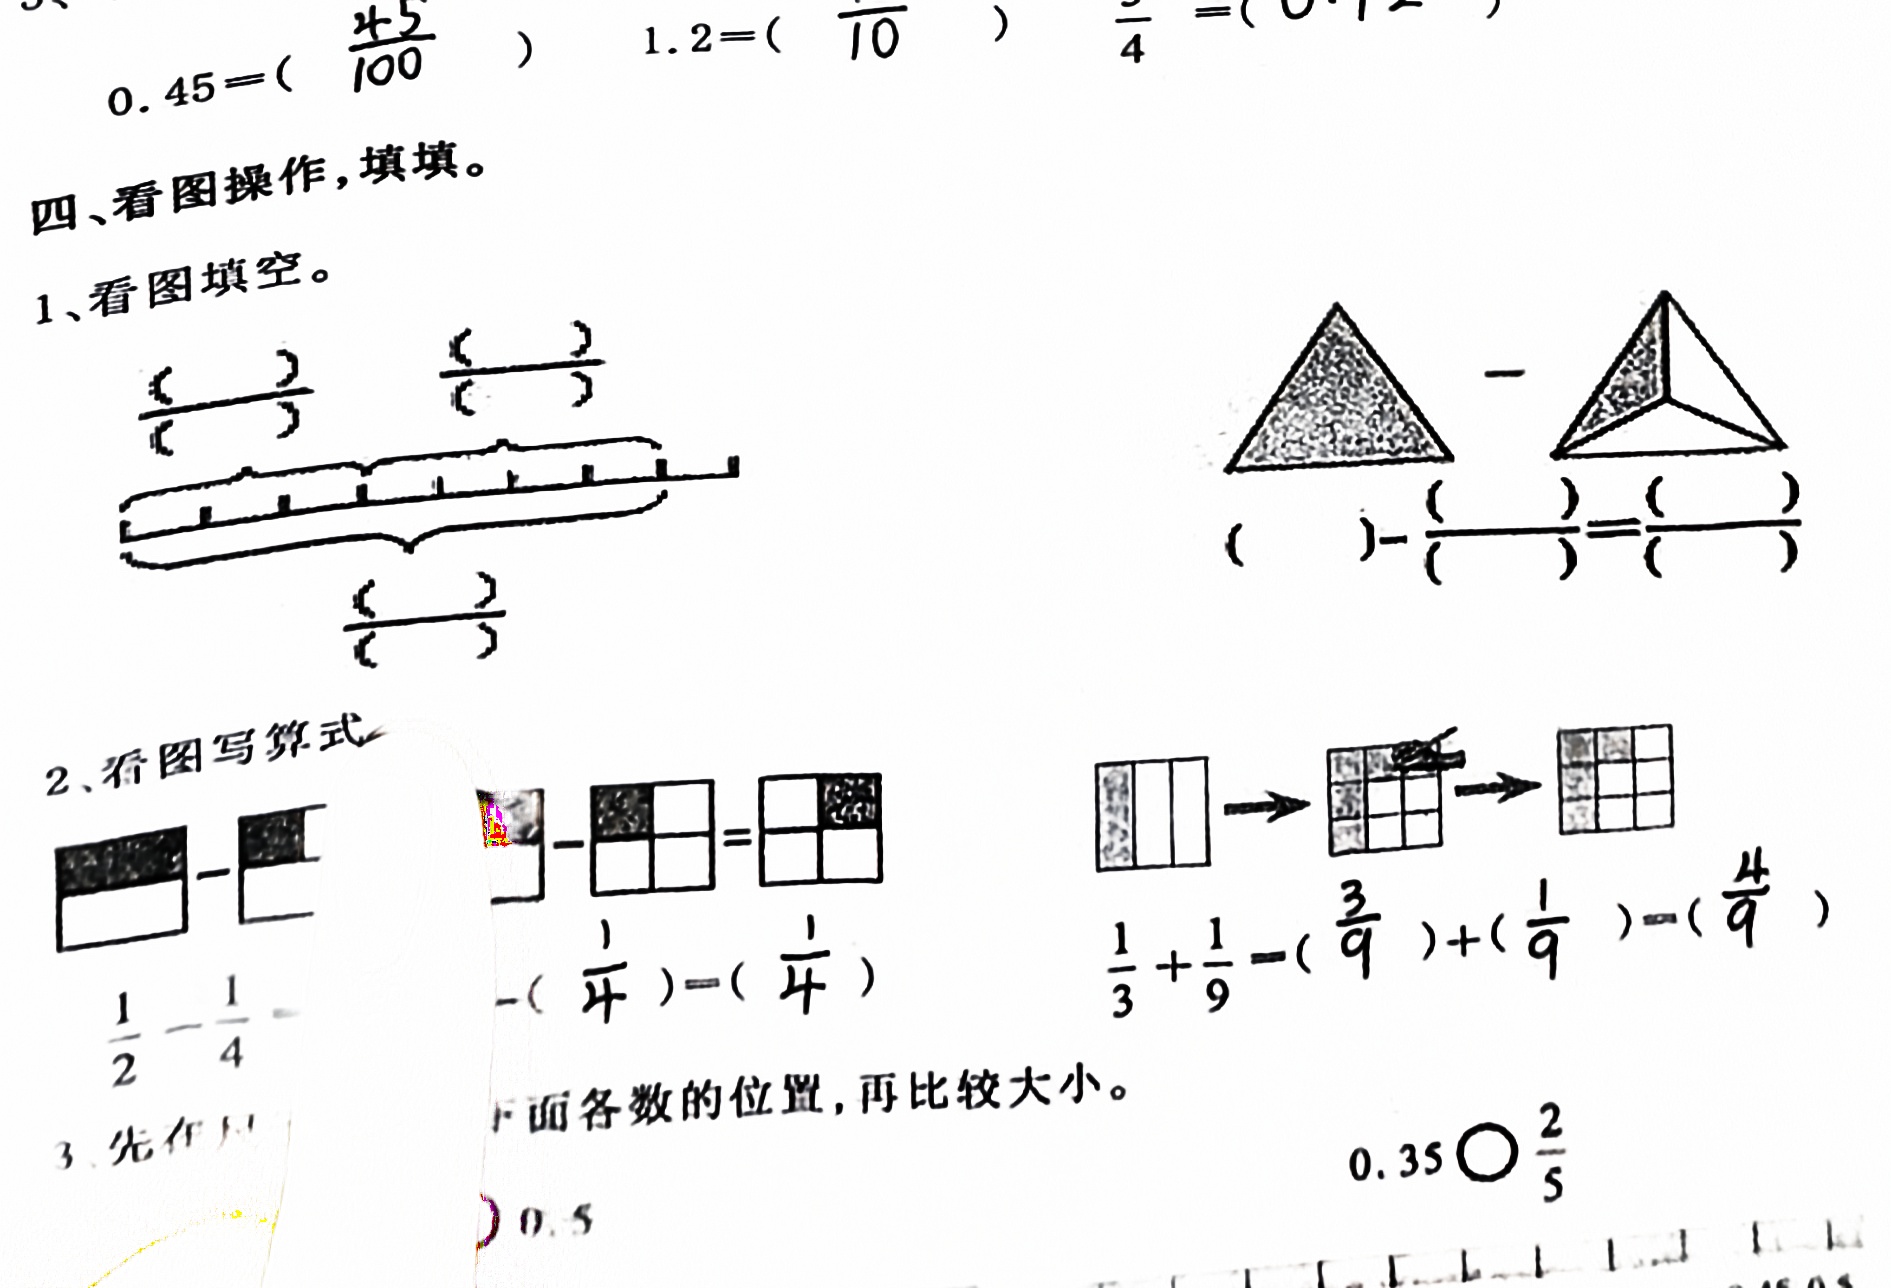 0.45=( 45/100 ) 1.2=( /10 ) /4 =( )
四、看图操作,填填。
1、看图填空。
( )/( ) ( )/( )
( )/( )
( )-( )/( )=( )/( )
2、看图写算式
- - =
1/2 - 1/4 = -( 1/4 )=( 1/4 ) 1/3+1/9=( 3/9 )+( 1/9 )=( 4/9 )
3、先在 下面各数的位置,再比较大小。
0.5 0.35○2/5